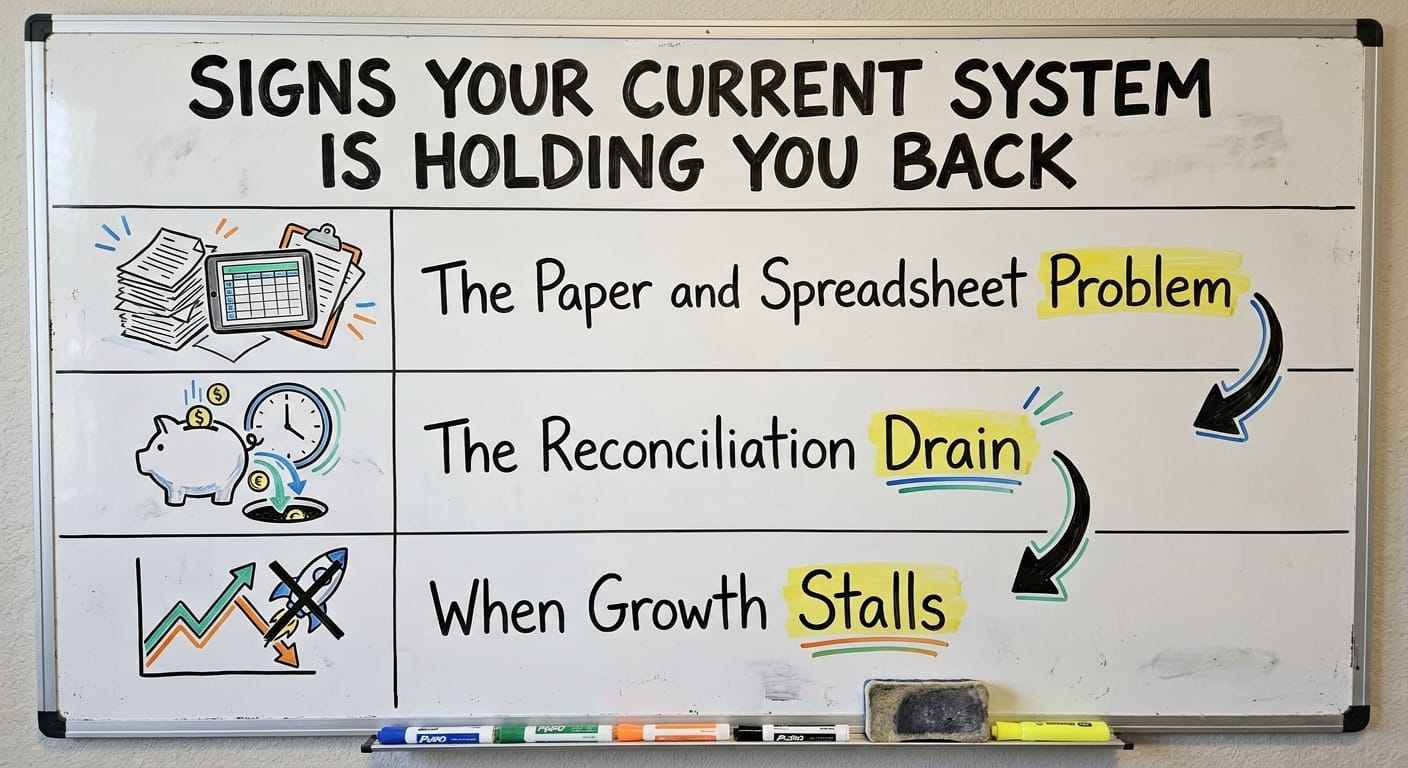 SIGNS YOUR CURRENT SYSTEM
IS HOLDING YOU BACK
The Paper and Spreadsheet Problem
$
$
€
The Reconciliation Drain
When Growth Stalls